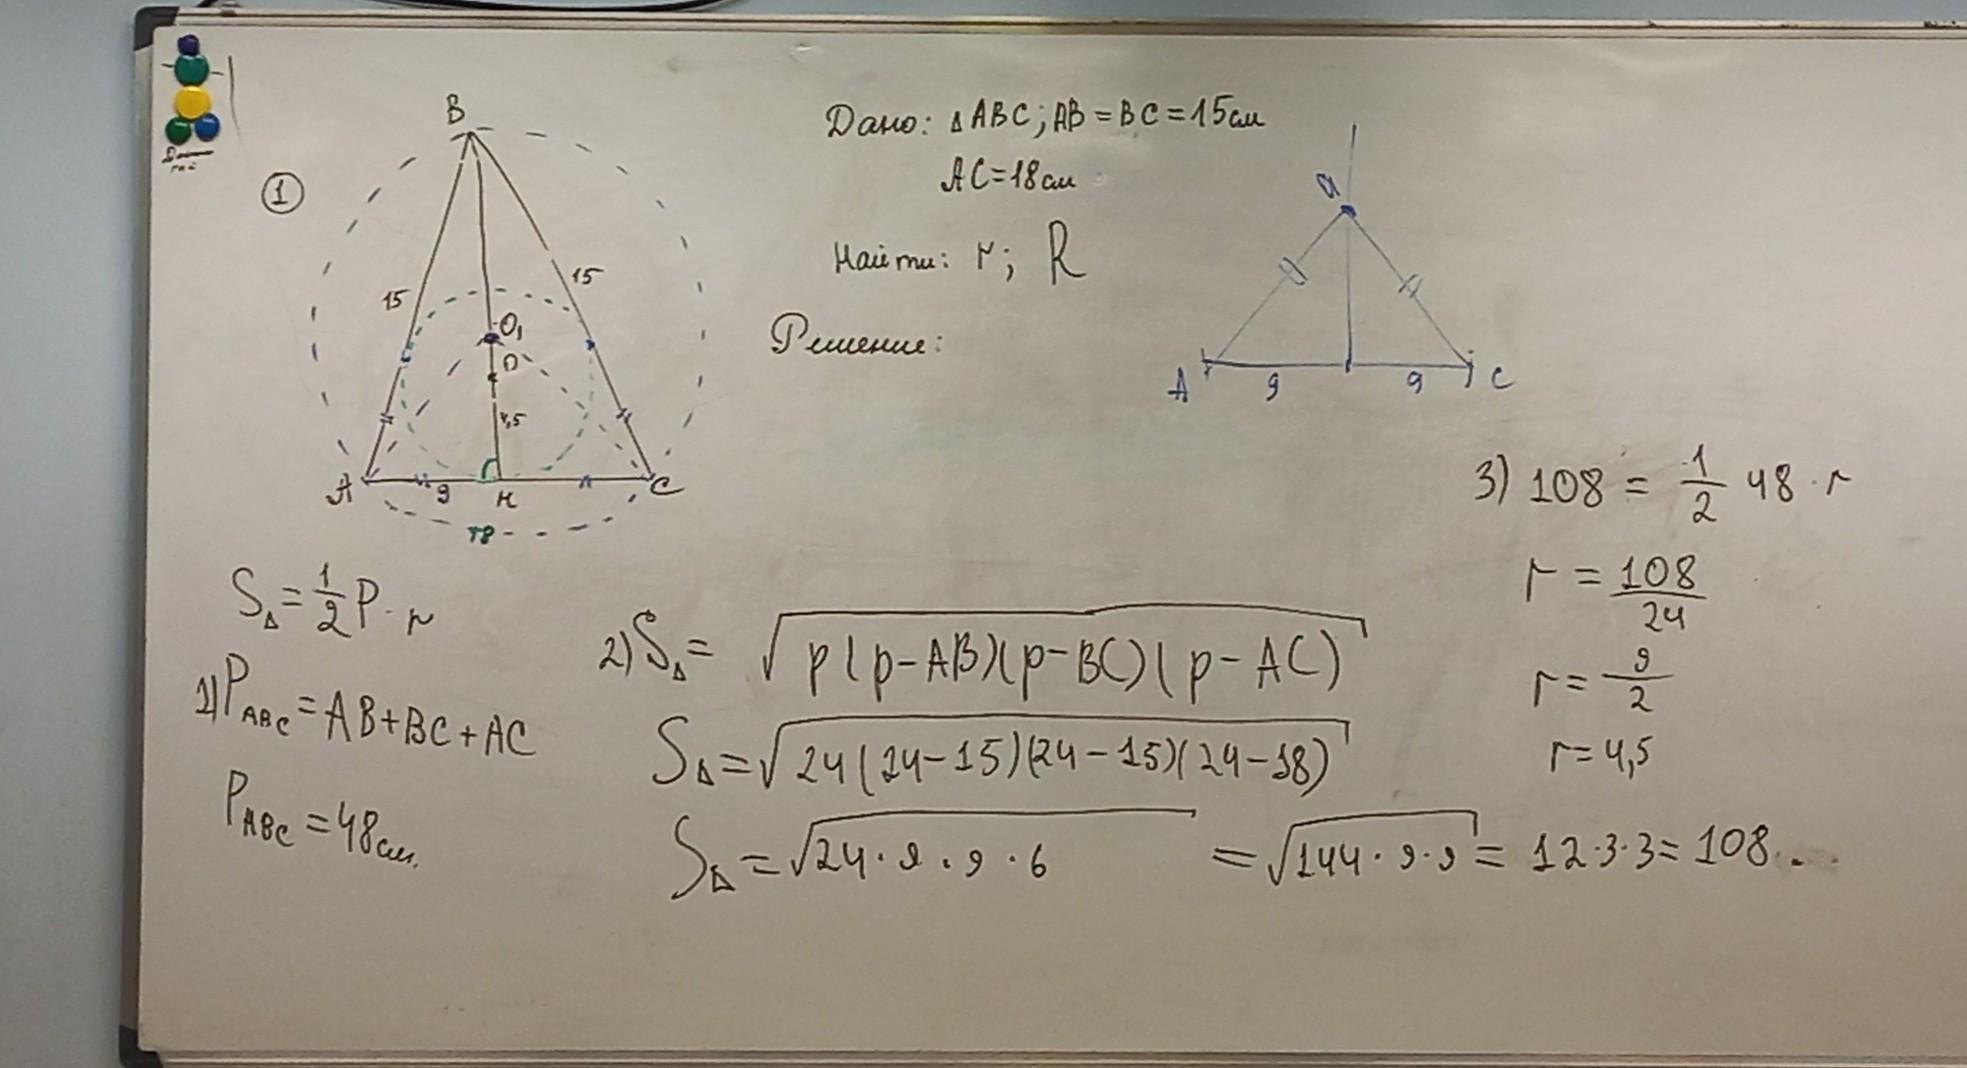 B
1
15
15
O₁
O
4,5
A
9
H
C
18
Дано: △ABC; AB = BC = 15см
AC = 18см
Найти: r; R
Решение:
A
9
9
C
S△ = 1/2 P · r
1) P_ABC = AB + BC + AC
P_ABC = 48см.
2) S△ = √(p(p-AB)(p-BC)(p-AC))
S△ = √(24(24-15)(24-15)(24-18))
S△ = √(24·9·9·6) = √(144·9·9) = 12·3·3 = 108...
3) 108 = 1/2 48 · r
r = 108/24
r = 9/2
r = 4,5